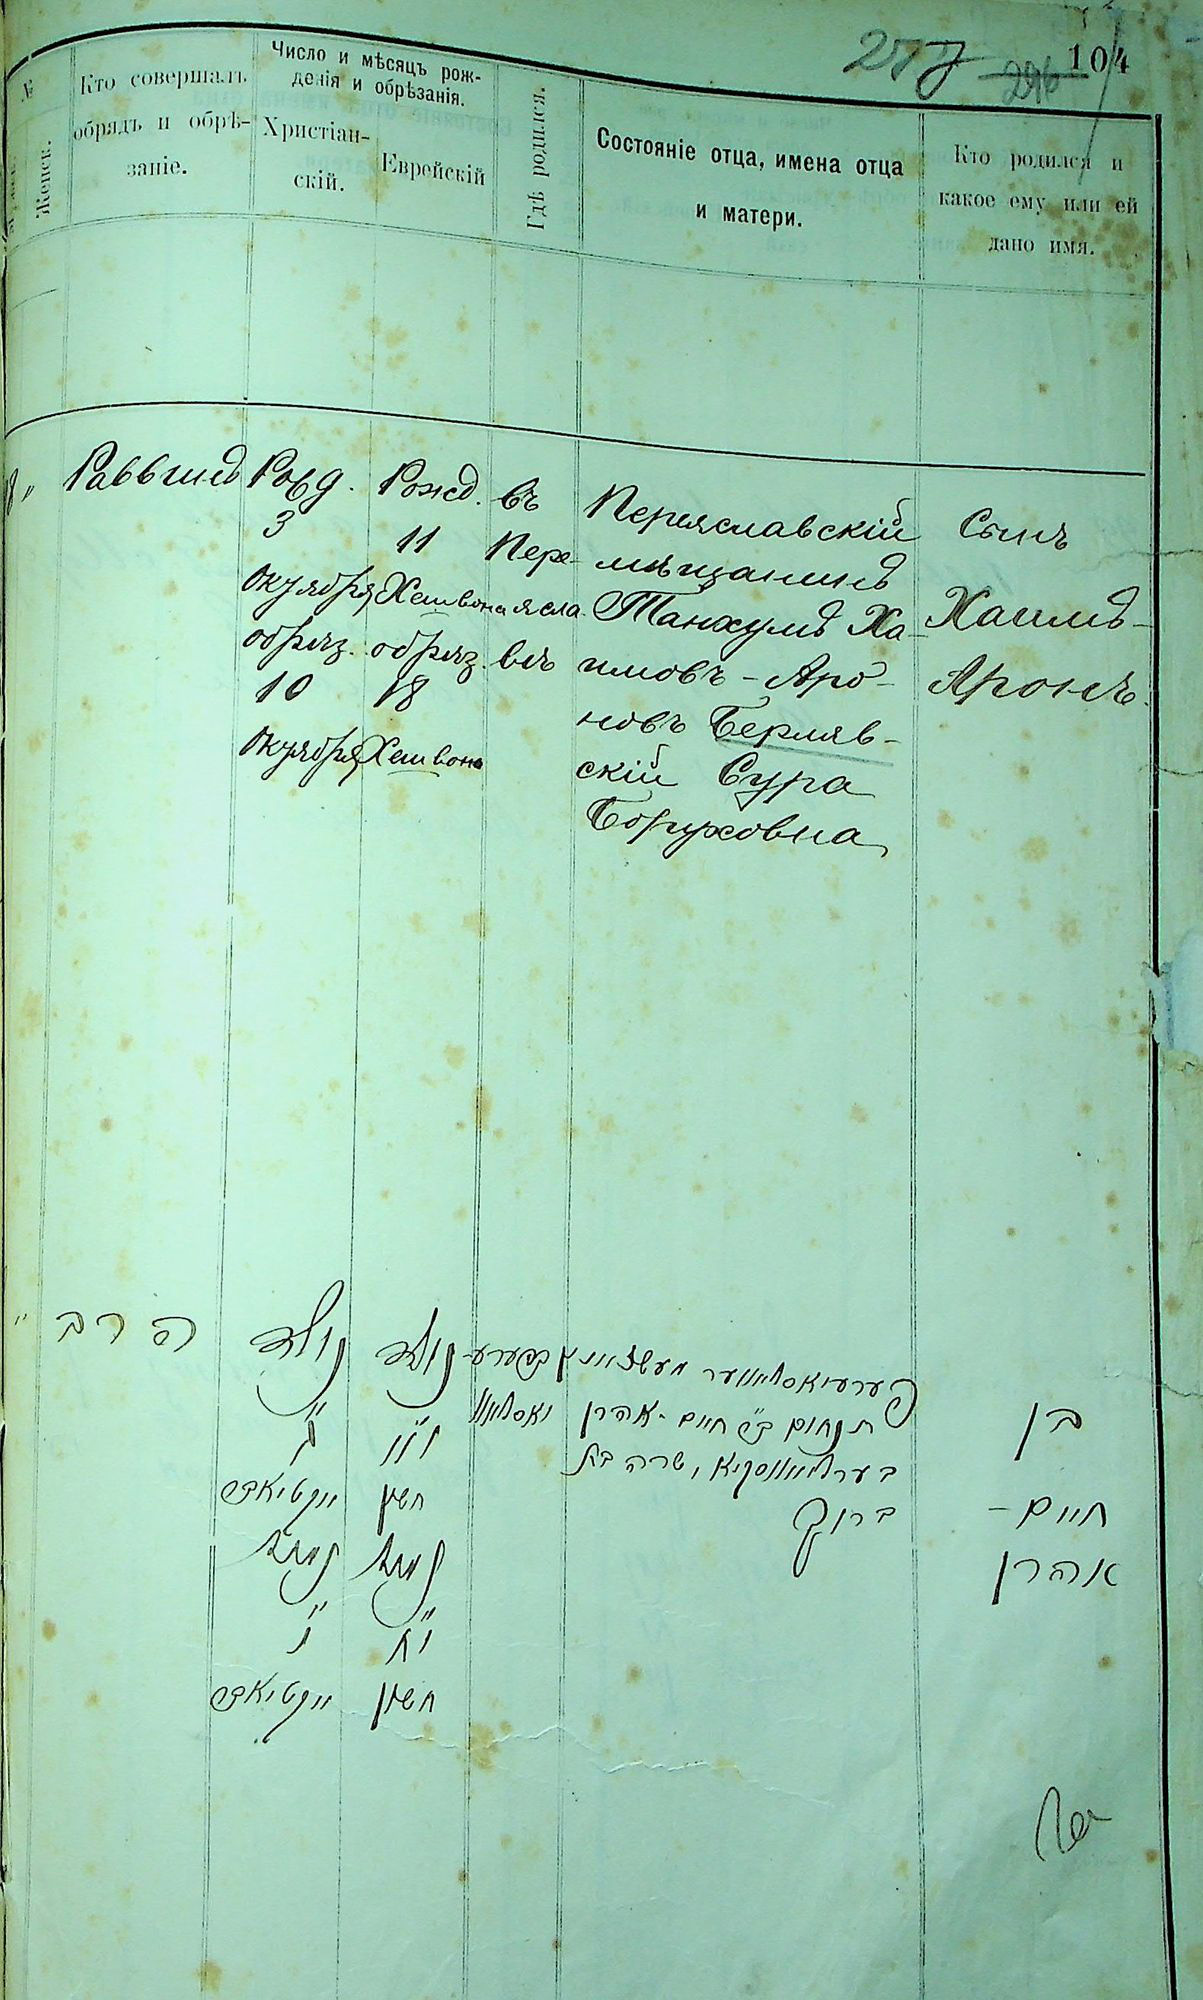 104
296
№
Женск.
Кто совершалъ
обрядъ и обрѣ-
заніе.
Число и мѣсяцъ рож-
денія и обрѣзанія.
Христіан-
скій.
Еврейскій
Гдѣ родился.
Состояніе отца, имена отца
и матери.
Кто родился и
какое ему или ей
дано имя.
Раввинъ
Рожд.
3
Октября
обрѣз.
10
Октября
Рожд.
11
Хешвона
обрѣз.
18
Хешвона
въ
Пере-
ясла
влѣ
Переяславскій
мѣщанинъ
Танхумъ Ха-
имовъ-Аро-
новъ Берляв-
скій Сура
Боруховна
Сынъ
Хаимъ-
Аронъ
הרב
נולד
ג
נימול
י
נולד
י״א
חשון
נימול
י״ח
חשון
תנחום ב״ר חיים-אהרן
שרה בת
ברוך
בן
חיים-
אהרן